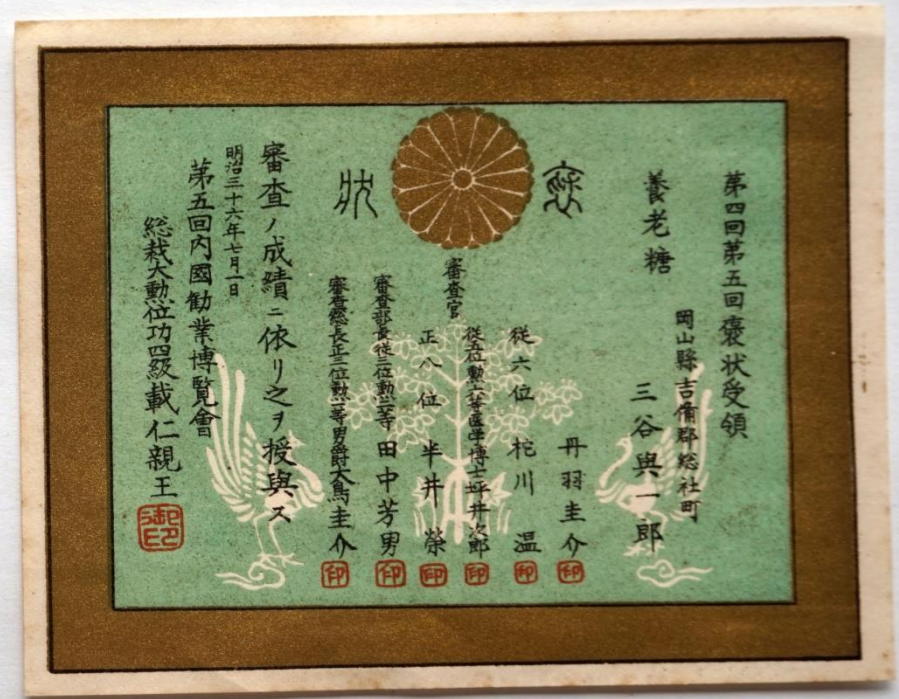 第四回第五回褒状受領
岡山縣吉備郡総社町
三谷與一郎
養老糖
褒状
丹羽圭介 印
従六位 柁川温 印
審査官
従五位勲六等医学博士坪井次郎 印
正八位 半井榮 印
審査部長従三位勲三等 田中芳男 印
審査總長正三位勲一等男爵大鳥圭介 印
審査ノ成績ニ依リ之ヲ授與ス
明治三十六年七月一日
第五回内國勧業博覧會
総裁大勲位功四級載仁親王 御印